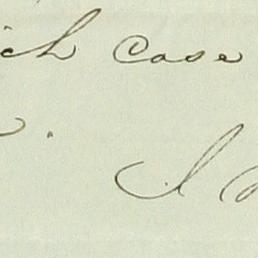 ich case
. I